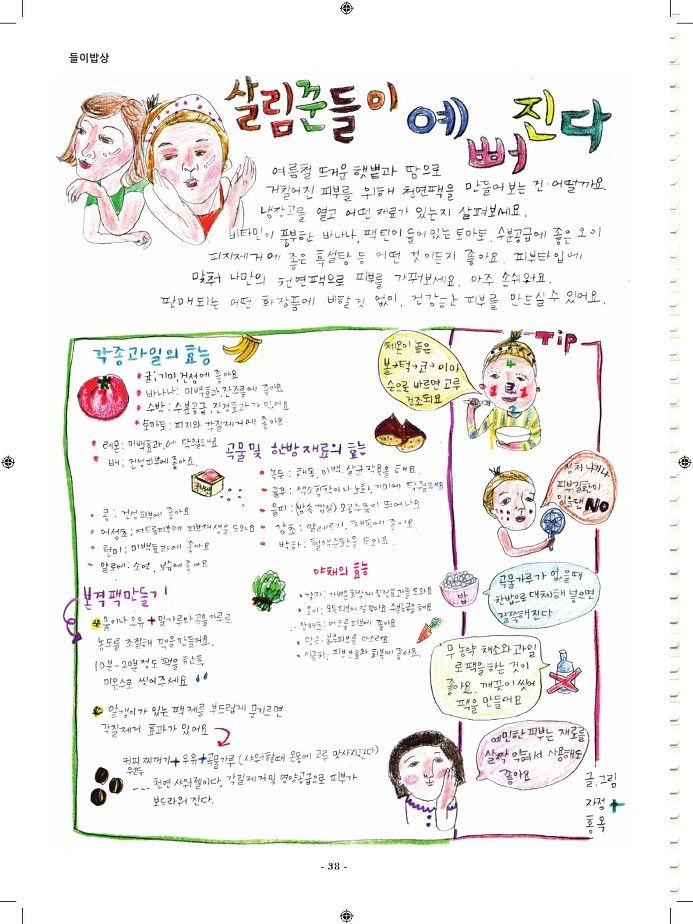 들이밥상
살림꾼들이 예뻐진다
여름철 뜨거운 햇볕과 땀으로
거칠어진 피부를 위해 천연팩을 만들어보는 건 어떨까요.
냉장고를 열고 어떤 재료가 있는지 살펴보세요.
비타민이 풍부한 바나나, 팩틴이 들어있는 토마토, 수분공급에 좋은 오이
피지제거에 좋은 흑설탕 등 어떤 것이든지 좋아요. 피부타입에
맞춰 나만의 천연팩으로 피부를 가꾸보세요. 아주 손쉬워요.
판매되는 어떤 화장품에 비할것 없이, 건강한 피부를 만드실 수 있어요.
각종과일의 효능
귤; 기미, 건성에 좋아요
바나나: 미백효과, 잔주름에 좋아요
수박: 수분공급, 진정효과가 있어요
토마토: 피지와 각질제거에 좋아요
레몬: 미백효과에 탁월해요
배: 건성피부에 좋아요.
곡물 및 한방 재료의 효능
녹두: 해독, 미백, 살균작용을 해요.
율무: 색소침착이나 노화, 기미에 탁월해요
율피: (밤속껍질) 모공수축이 뛰어나요
감초: 알레르기, 해독에 좋아요
박하: 혈액순환을 도와요
콩: 건성피부에 좋아요
어성초: 여드름피부에 피부재생을 도와요
현미: 미백효과에 좋아요
알로에: 소염, 보습에 좋아요
야채의 효능
감자: 가벼운 화상에 진정효과를 도와요
당근: 붉은피부를 다스려요
본격 팩만들기
물이나 우유 + 밀가루와 곡물가루로
농도를 조절해 팩을 만들어요.
10분-20분정도 팩을 한 후
미온수로 씻어주세요
알갱이가 있는 팩 재를 부드럽게 문지르면
각질제거 효과가 있어요
커피 찌꺼기 + 우유 + 곡물가루 (샤워할때 온몸에 고루 맛사지한다)
천연 샤워젤이다, 각질제거 및 영양공급으로 피부가
보드라워 진다.
Tip
체온이 높은
볼→턱→코→이마
순으로 바르면 고루
건조되요
상처나거나
피부질환이
있을땐 NO
밥
곡물가루가 없을때
찬밥으로 대체해 넣으면
감쪽해진다
무농약 채소와 과일
로 팩을 하는 것이
좋아요. 깨끗이 씻어
팩을 만들어요
예민한 피부는 재료를
살짝 익혀서 사용해도
좋아요
글. 그림
자정 +
홍옥
- 38 -